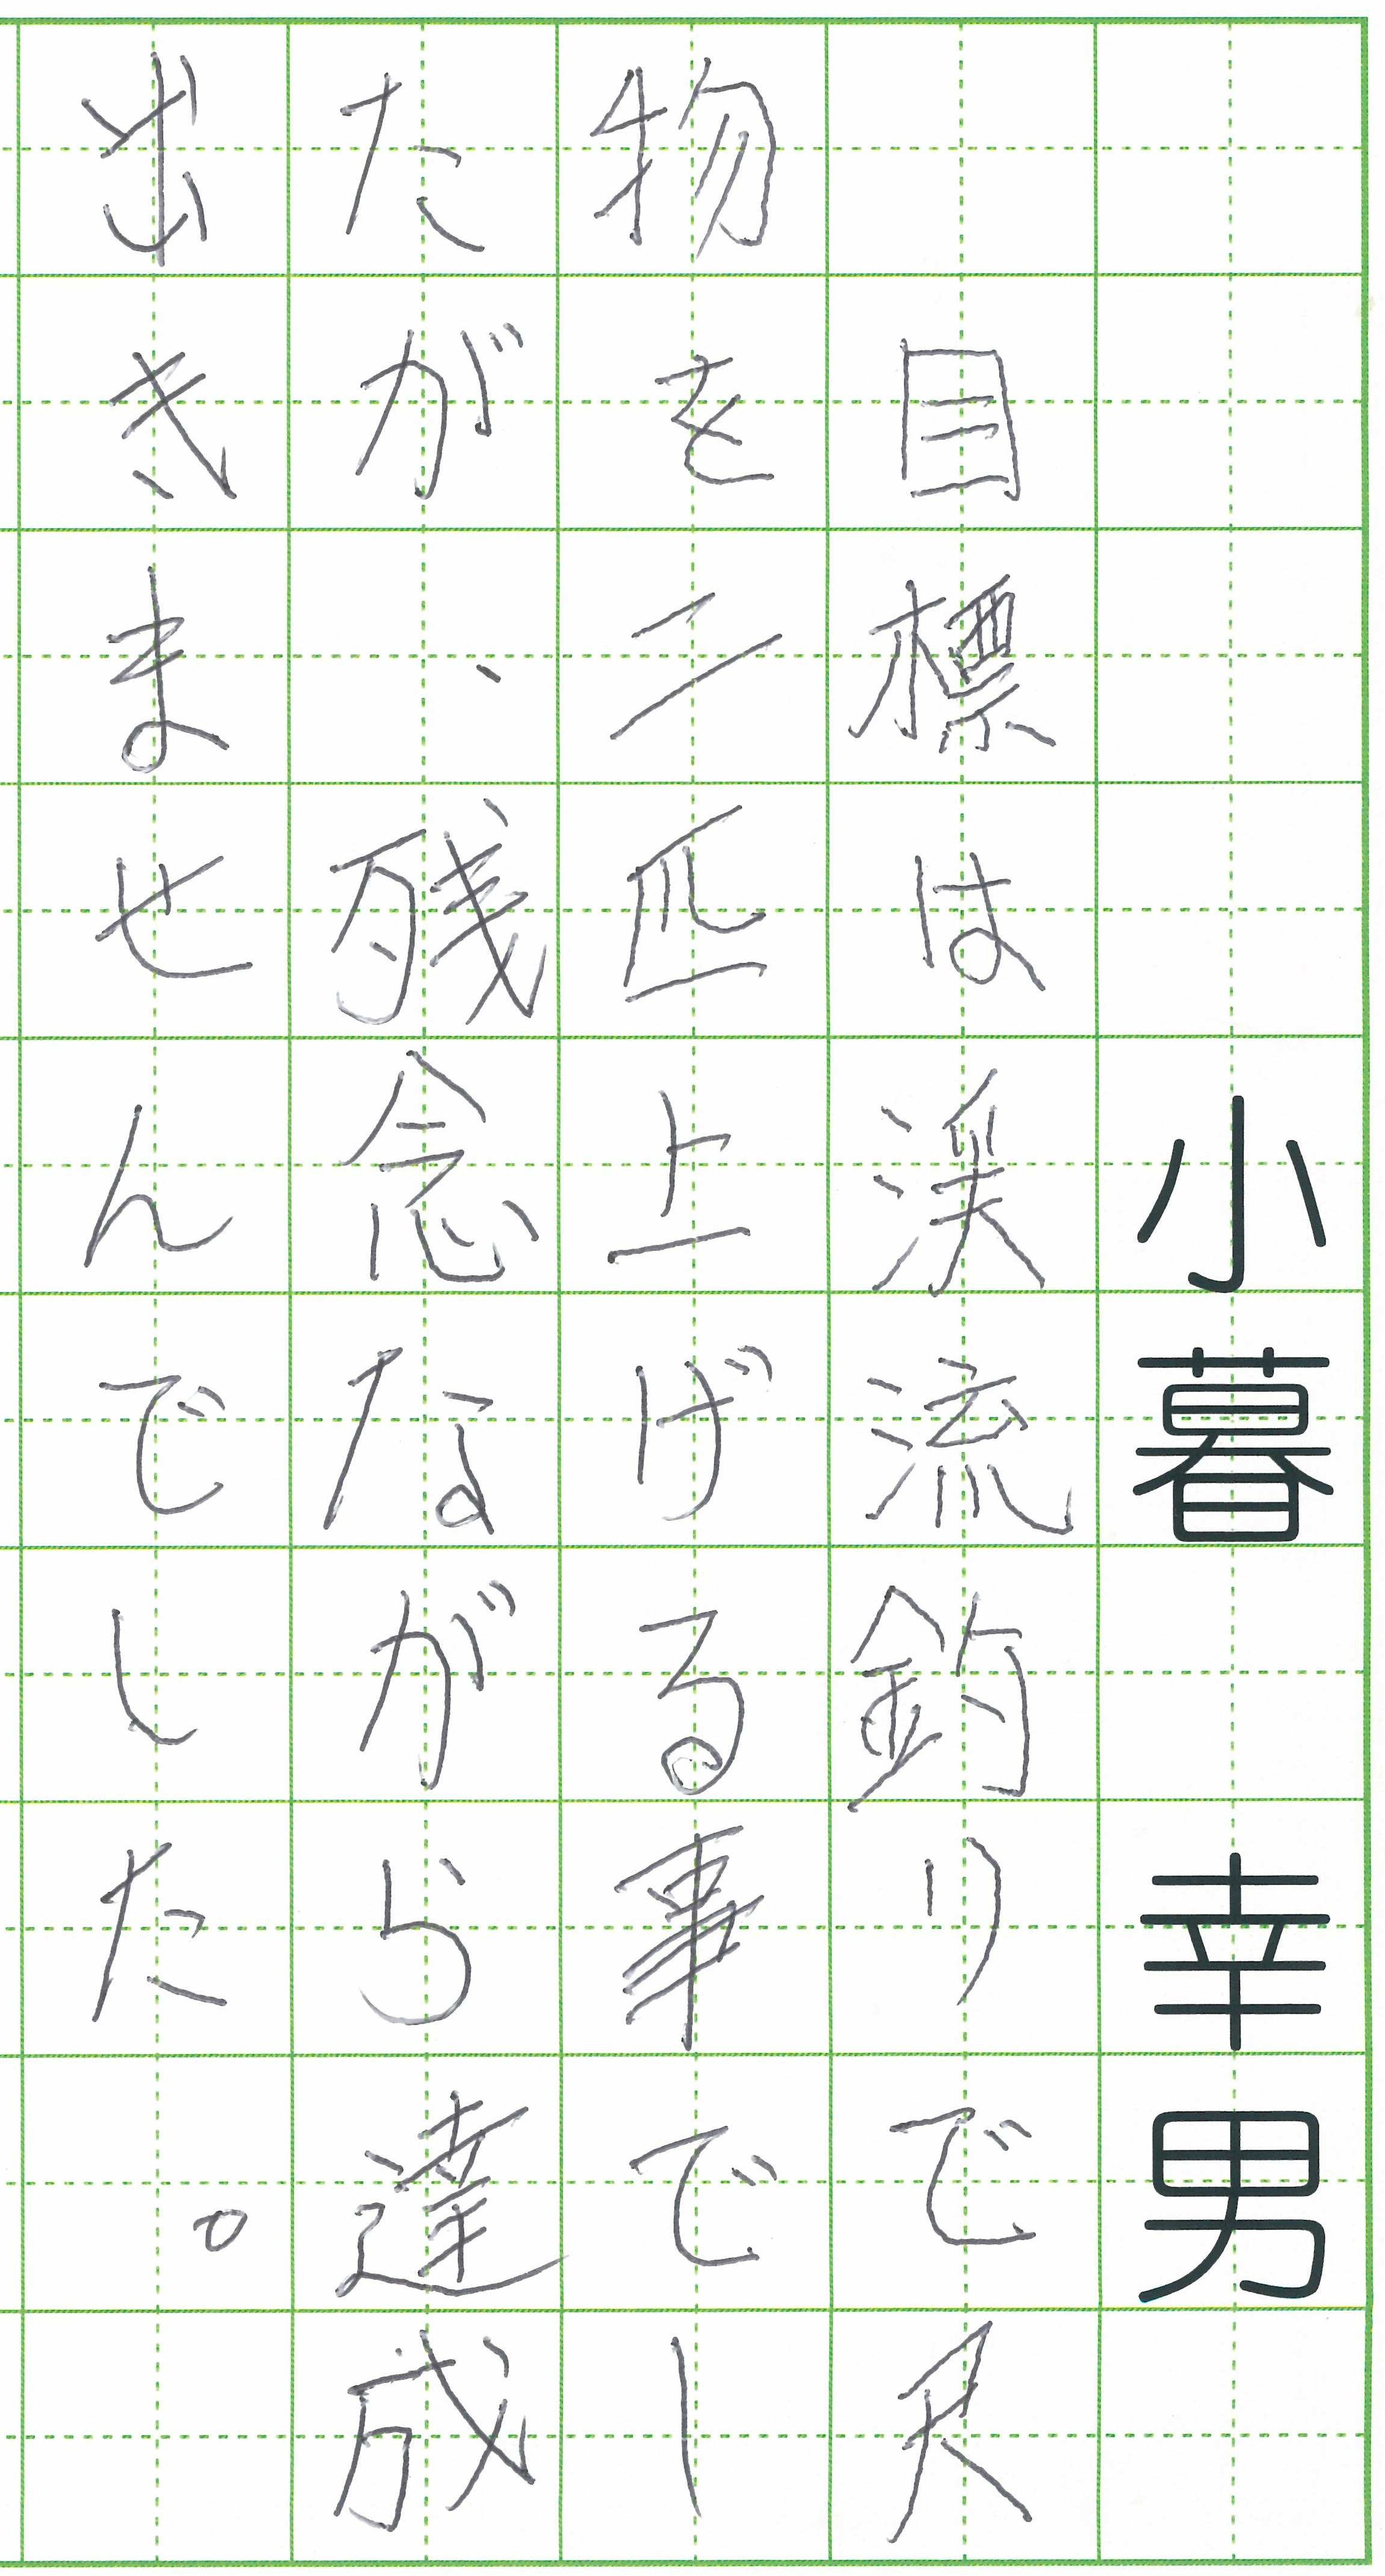 小暮 幸男
目標は渓流釣りで尺
物を二匹上げる事でし
たが、残念ながら達成
出きませんでした。